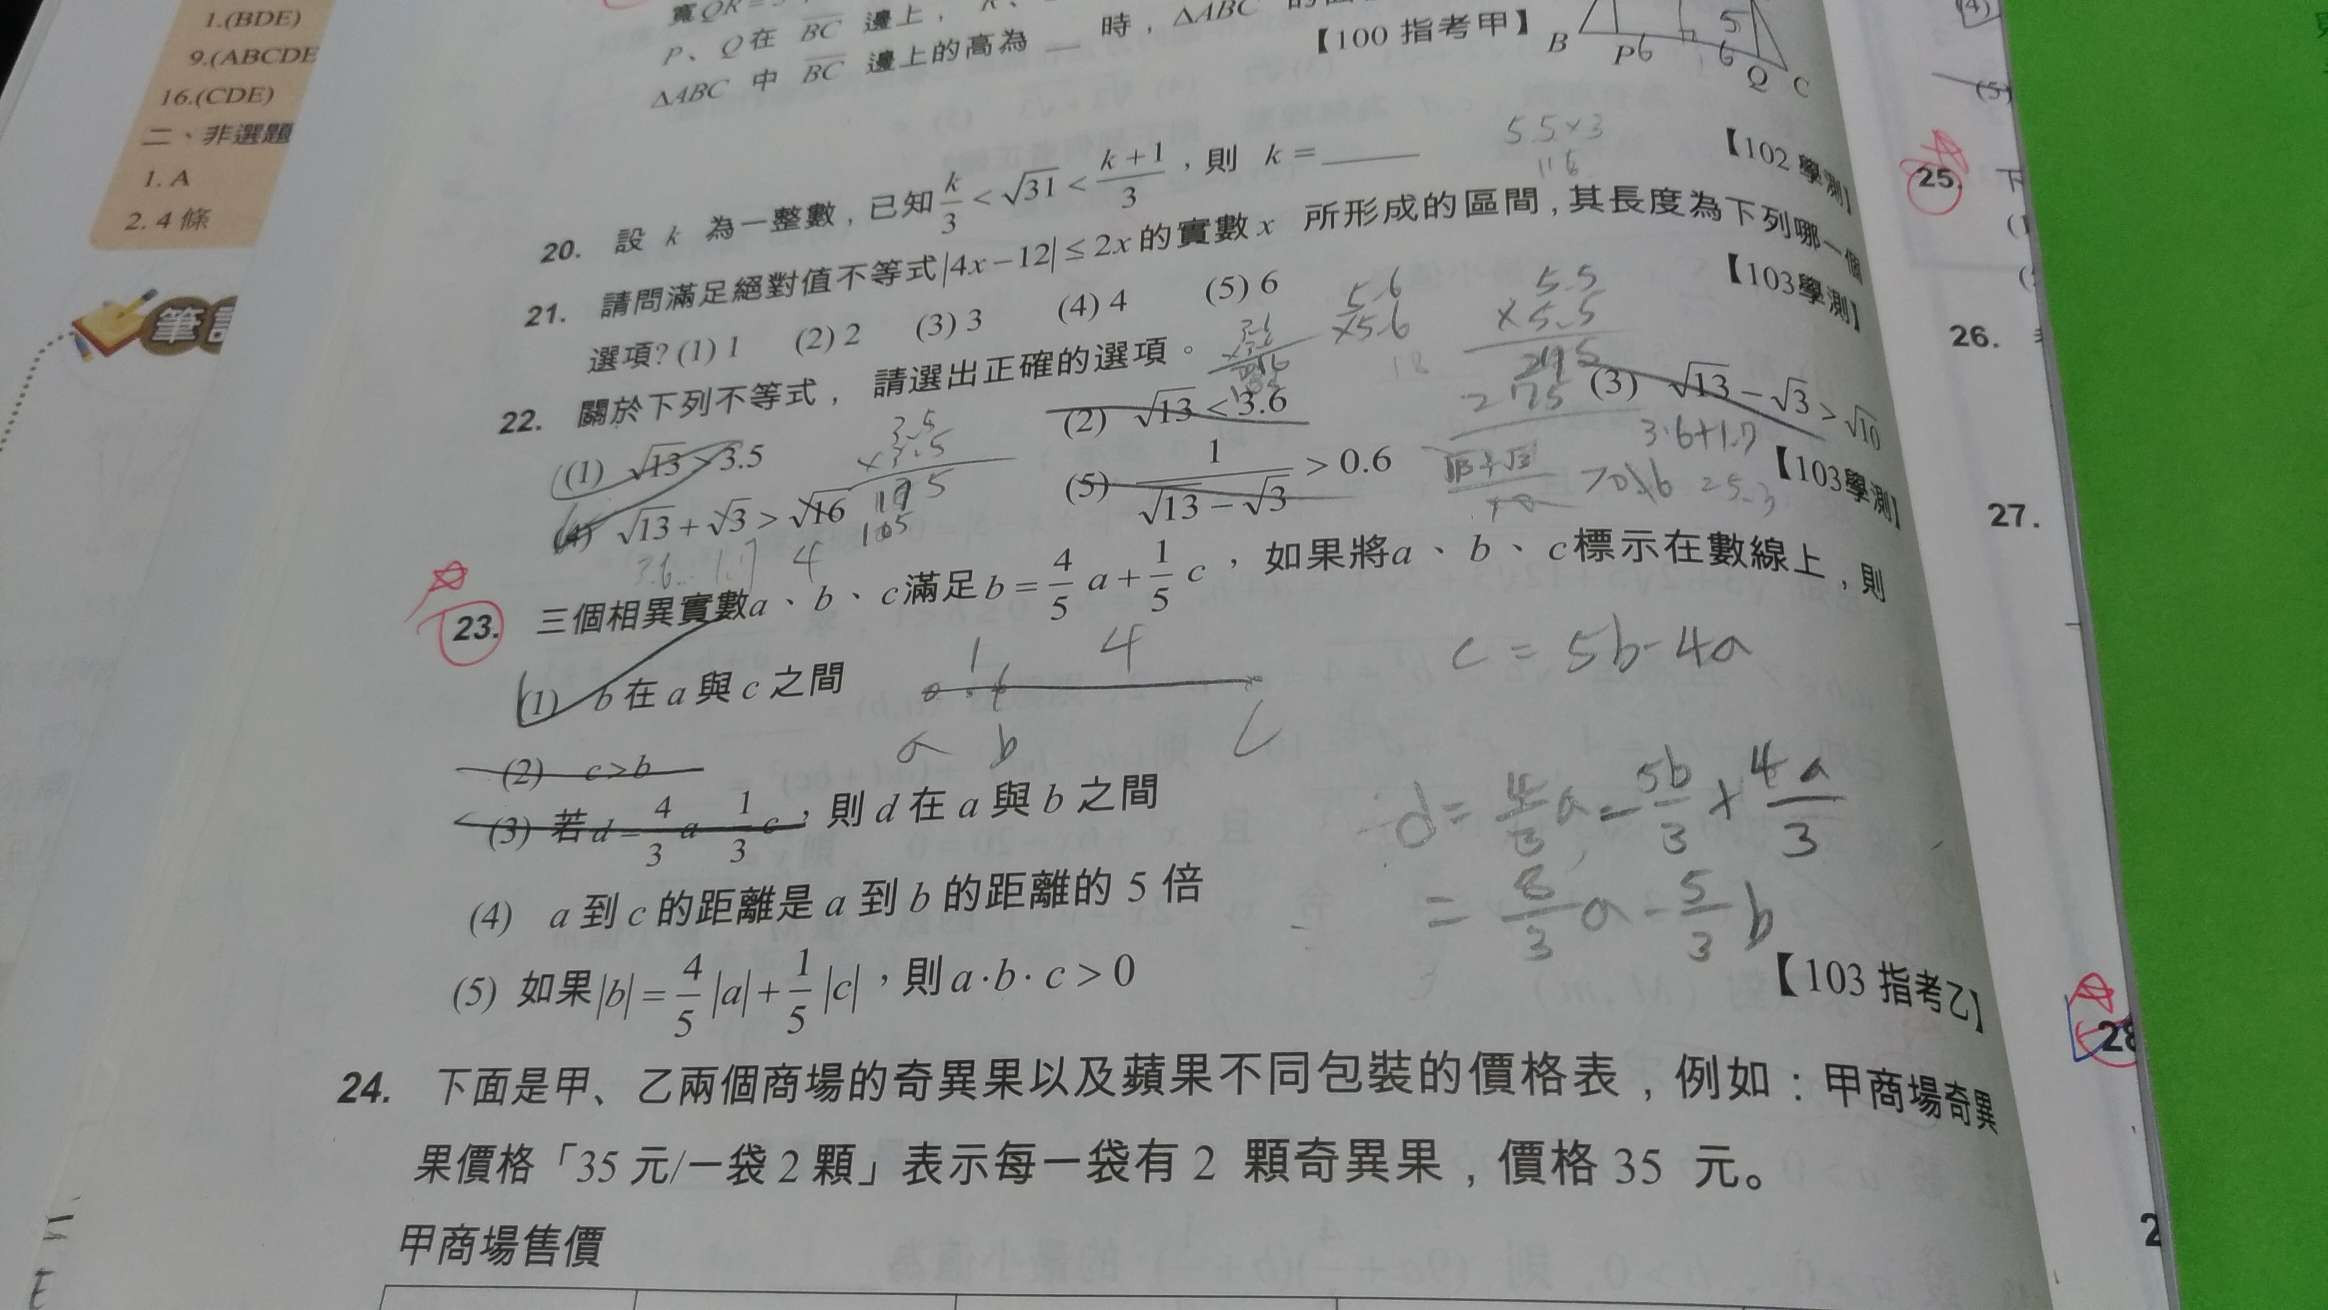 1.(BDE)
9.(ABCDE
16.(CDE)
二、非選題
1. A
2. 4 條
筆
寬 QR =
P、Q在 BC 邊上,
ΔABC 中 BC 邊上的高為 __ 時,ΔABC
【100 指考甲】
B P 6 6 Q C
5
20. 設 k 為一整數,已知 k/3 < √31 < (k+1)/3,則 k = ____
【102 學測】
5.5×3
21. 請問滿足絕對值不等式|4x−12| ≤ 2x的實數 x 所形成的區間,其長度為下列哪一個
選項? (1) 1 (2) 2 (3) 3 (4) 4 (5) 6
【103學測】
5.6
×5.6
5.5
×5.5
275
22. 關於下列不等式, 請選出正確的選項。
(1) √13 > 3.5 (2) √13 < 3.6 (3) √13 − √3 > √10
3.5
×3.5
175
105
(4) √13 + √3 > √16 (5) 1/(√13 − √3) > 0.6
【103學測】
3.6 1.7 4
3.6+1.7
=5.3
23. 三個相異實數a、b、c滿足b = 4/5 a + 1/5 c,如果將a、b、c標示在數線上,則
(1) b 在 a 與 c 之間
1 4
a b c
c = 5b-4a
(2) c > b
(3) 若 d = 4/3 a − 1/3 c,則 d 在 a 與 b 之間
d = 4/3 a - 5b/3 + 4a/3
= 8/3 a - 5/3 b
(4) a 到 c 的距離是 a 到 b 的距離的 5 倍
(5) 如果|b| = 4/5 |a| + 1/5 |c|,則 a·b·c > 0
【103 指考乙】
24. 下面是甲、乙兩個商場的奇異果以及蘋果不同包裝的價格表,例如:甲商場奇異
果價格「35 元/一袋 2 顆」表示每一袋有 2 顆奇異果,價格 35 元。
甲商場售價
(4)
(5)
25. 下
26.
27.
28
2